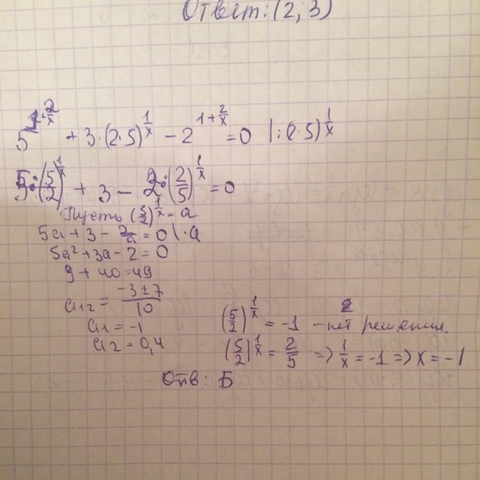 Ответ: (2, 3)
5^{1+\frac{2}{x}} + 3·(2·5)^{\frac{1}{x}} − 2^{1+\frac{2}{x}} = 0 |:(2·5)^{\frac{1}{x}}
5·(\frac{5}{2})^{\frac{1}{x}} + 3 − 2·(\frac{2}{5})^{\frac{1}{x}} = 0
Пусть (\frac{5}{2})^{\frac{1}{x}} = a
5a + 3 − \frac{2}{a} = 0 |·a
5a² + 3a − 2 = 0
9 + 40 = 49
a₁,₂ = \frac{−3±7}{10}
a₁ = −1
a₂ = 0,4
(\frac{5}{2})^{\frac{1}{x}} = −1 – нет решения.
(\frac{5}{2})^{\frac{1}{x}} = \frac{2}{5} => \frac{1}{x} = −1 => x = −1
Отв: Б